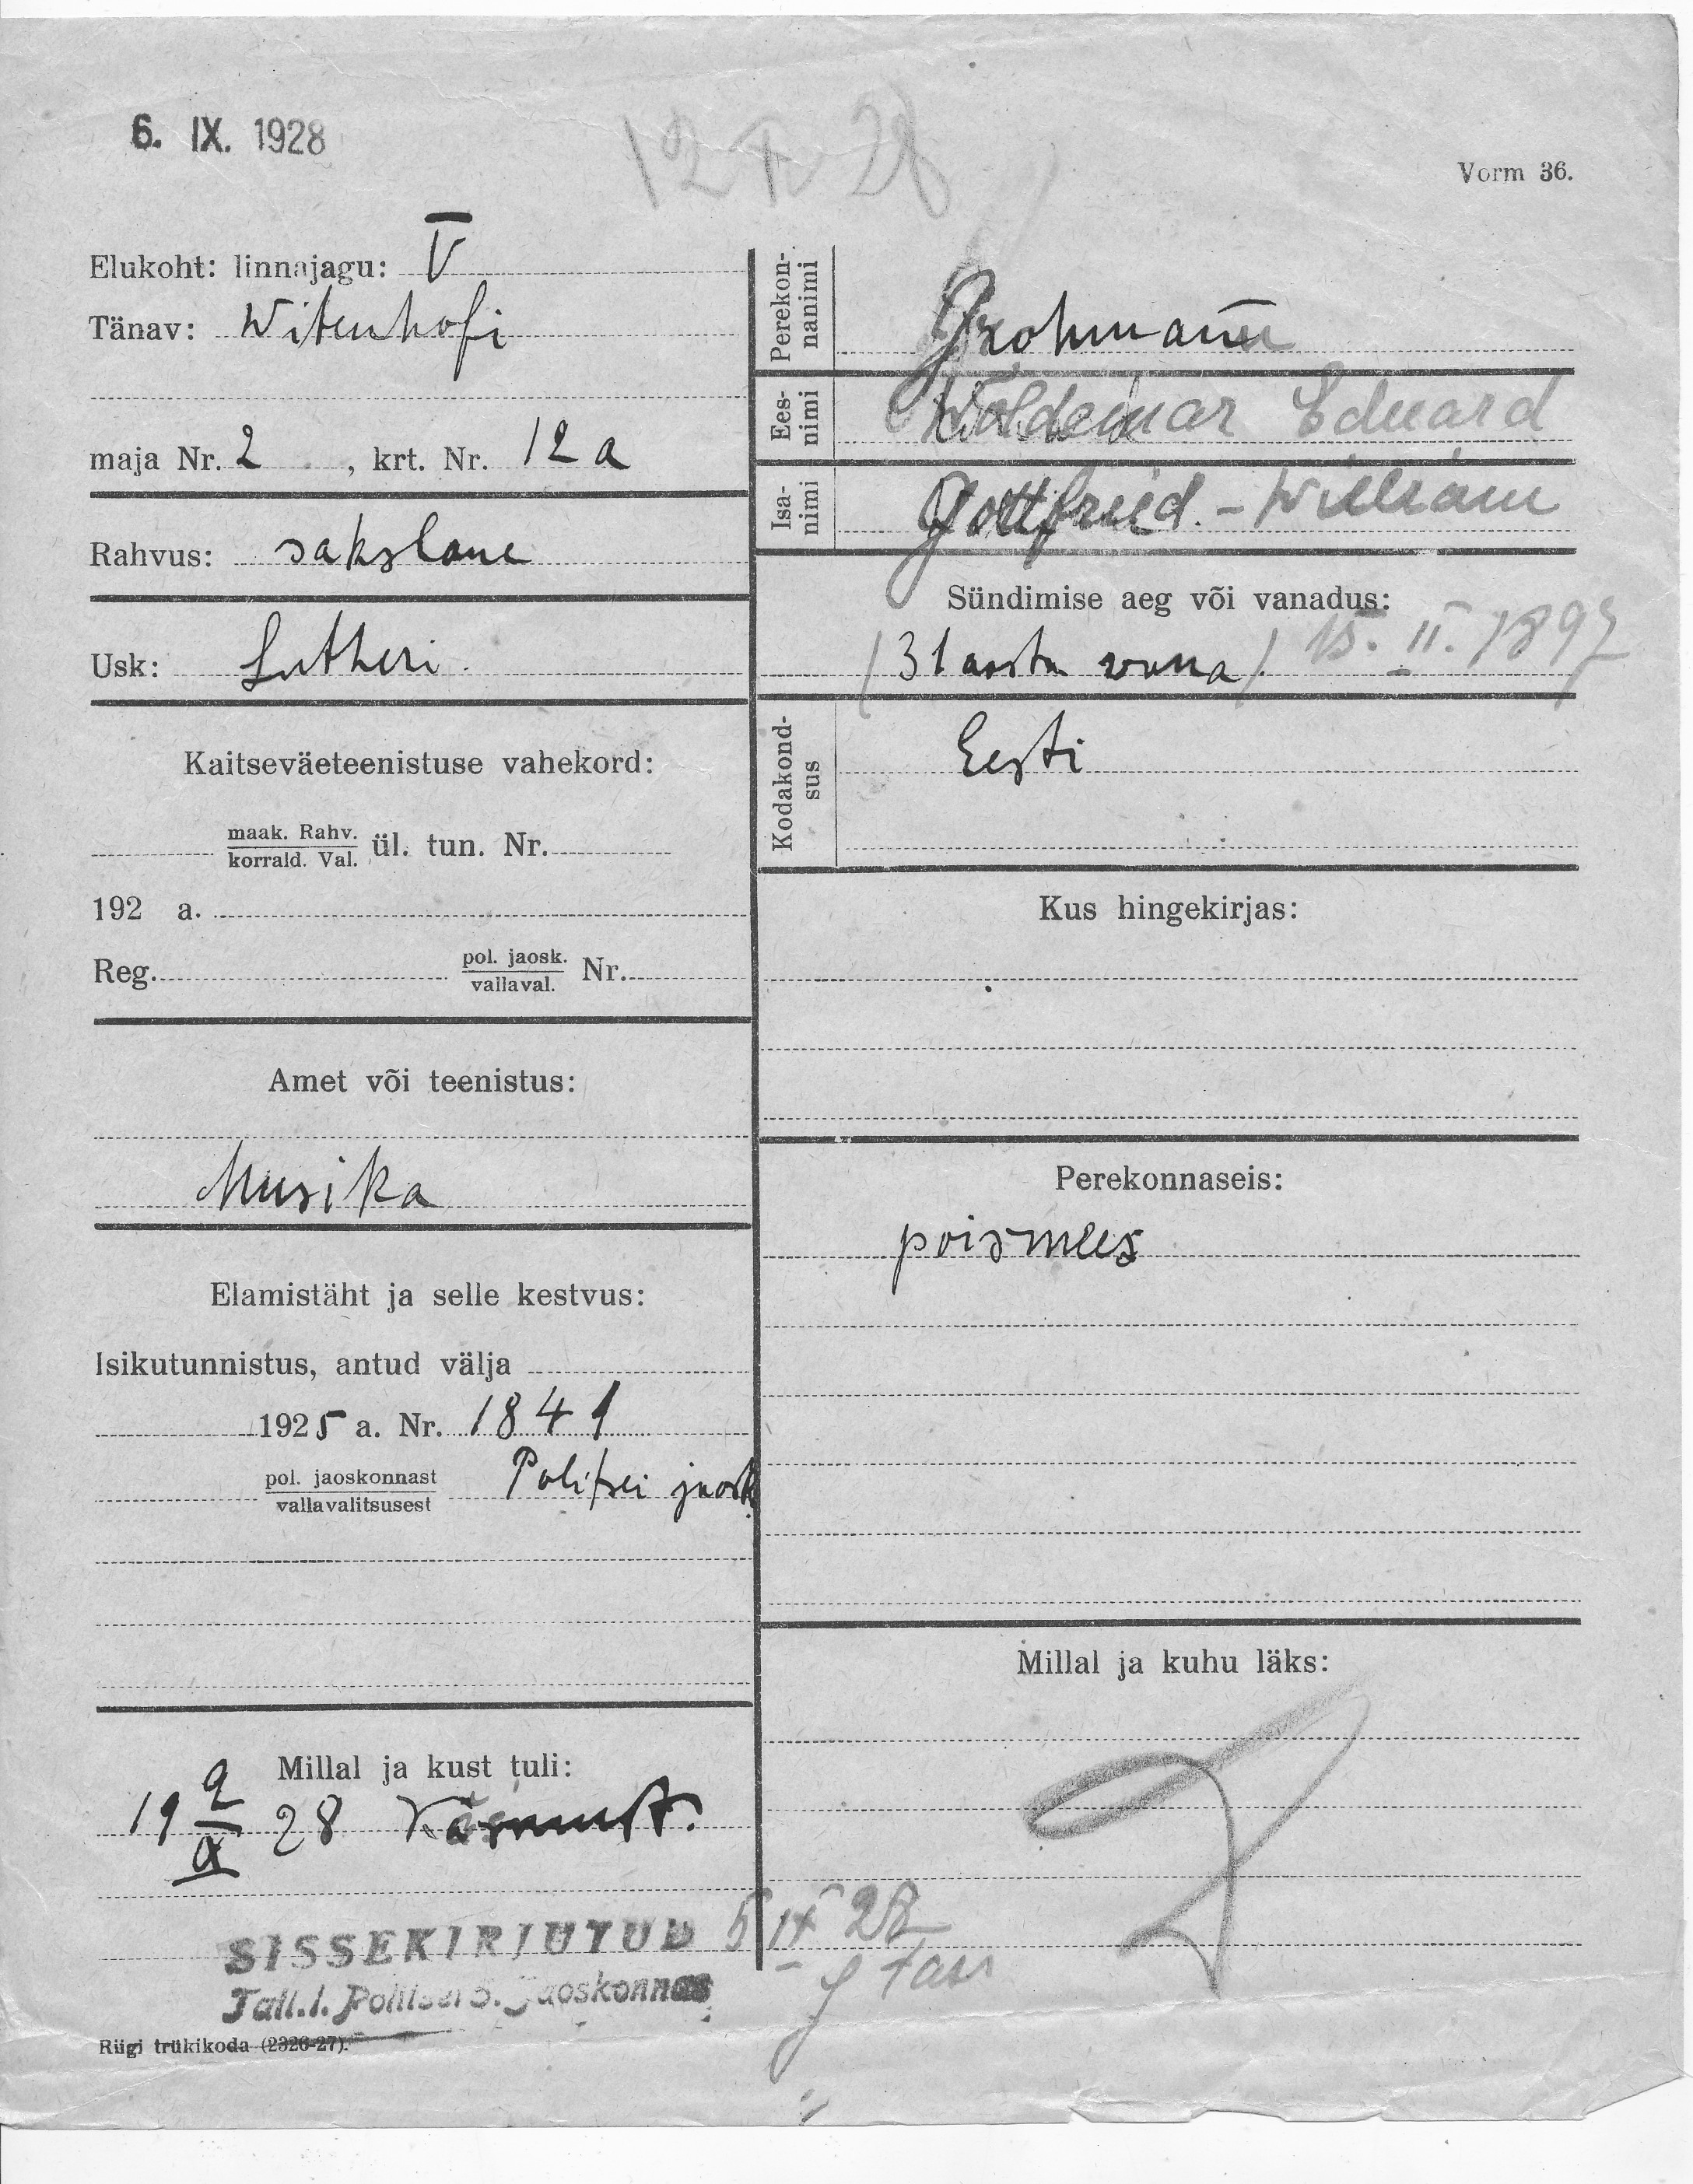 6. IX. 1928
Vorm 36.
Elukoht: linnajagu: V
Tänav: Witenhofi
maja Nr. 2 , krt. Nr. 12 a
Rahvus: sakslane
Usk: Lutheri.
Kaitseväeteenistuse vahekord:
maak. Rahv.
korrald. Val. ül. tun. Nr.
192 a.
Reg. pol. jaosk.
vallaval. Nr.
Amet või teenistus:
Musika
Elamistäht ja selle kestvus:
Isikutunnistus, antud välja
1925 a. Nr. 1841
pol. jaoskonnast
vallavalitsusest Politsei jaosk.
Millal ja kust tuli:
28
SISSEKIRJUTUD 5 IX 28
Tall.l. Politsei 5. Jaoskonnas
Riigi trükikoda (2326-27).
Perekon-
nanimi
Grohmann
Ees-
nimi
Woldemar Eduard
Isa-
nimi
Gottfried - William
Sündimise aeg või vanadus:
(31 aasta vana). 15. II. 1897
Kodakond-
sus
Eesti
Kus hingekirjas:
Perekonnaseis:
poismees
Millal ja kuhu läks: